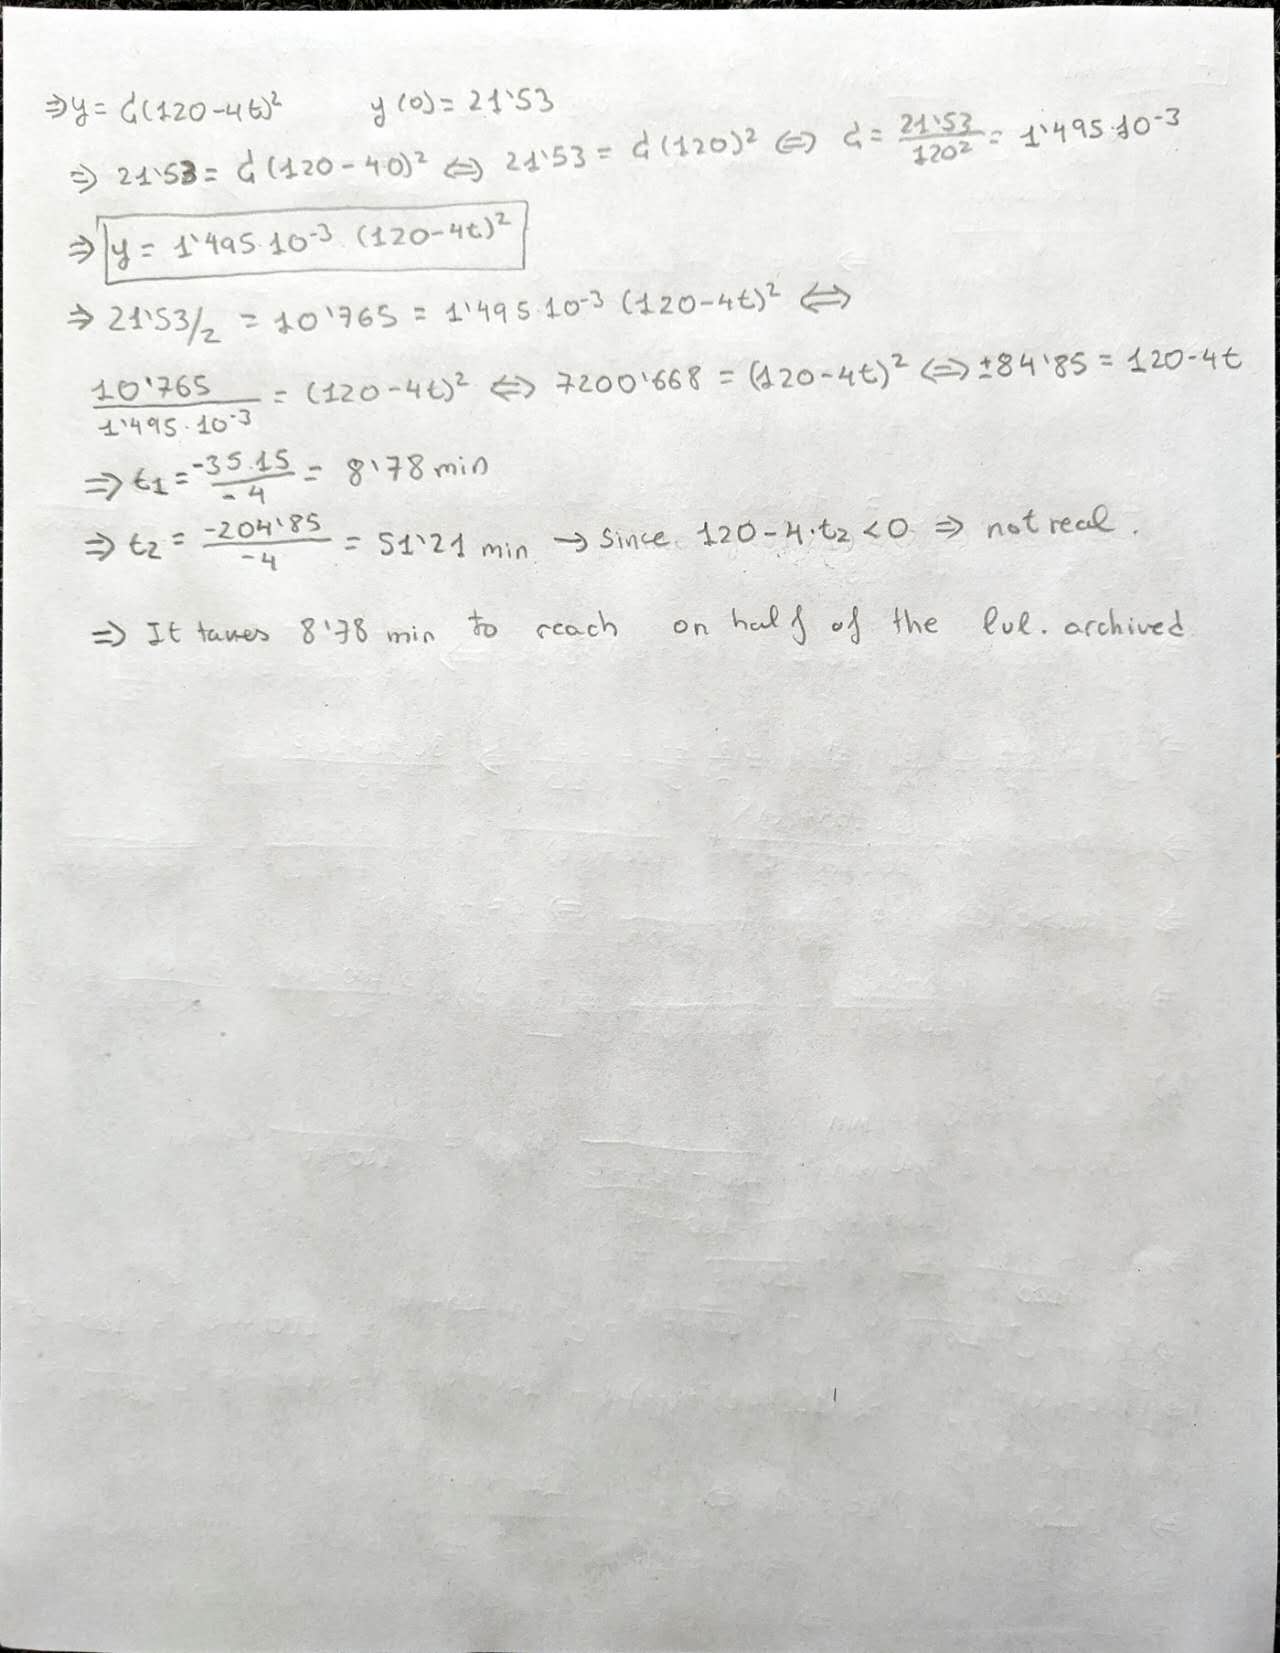 ⇒ y = C(120-4t)² y(0) = 21'53
⇒ 21'53 = C(120-40)² ⇔ 21'53 = C(120)² ⇔ C = 21'53/120² = 1'495·10⁻³
⇒ y = 1'495·10⁻³ (120-4t)²
⇒ 21'53/2 = 10'765 = 1'495·10⁻³ (120-4t)² ⇔
10'765/1'495·10⁻³ = (120-4t)² ⇔ 7200'668 = (120-4t)² ⇔ ±84'85 = 120-4t
⇒ t₁ = -35.15/-4 = 8'78 min
⇒ t₂ = -204'85/-4 = 51'21 min → Since 120-4·t₂ < 0 ⇒ not real.
⇒ It taves 8'78 min to reach on half of the lvl. archived